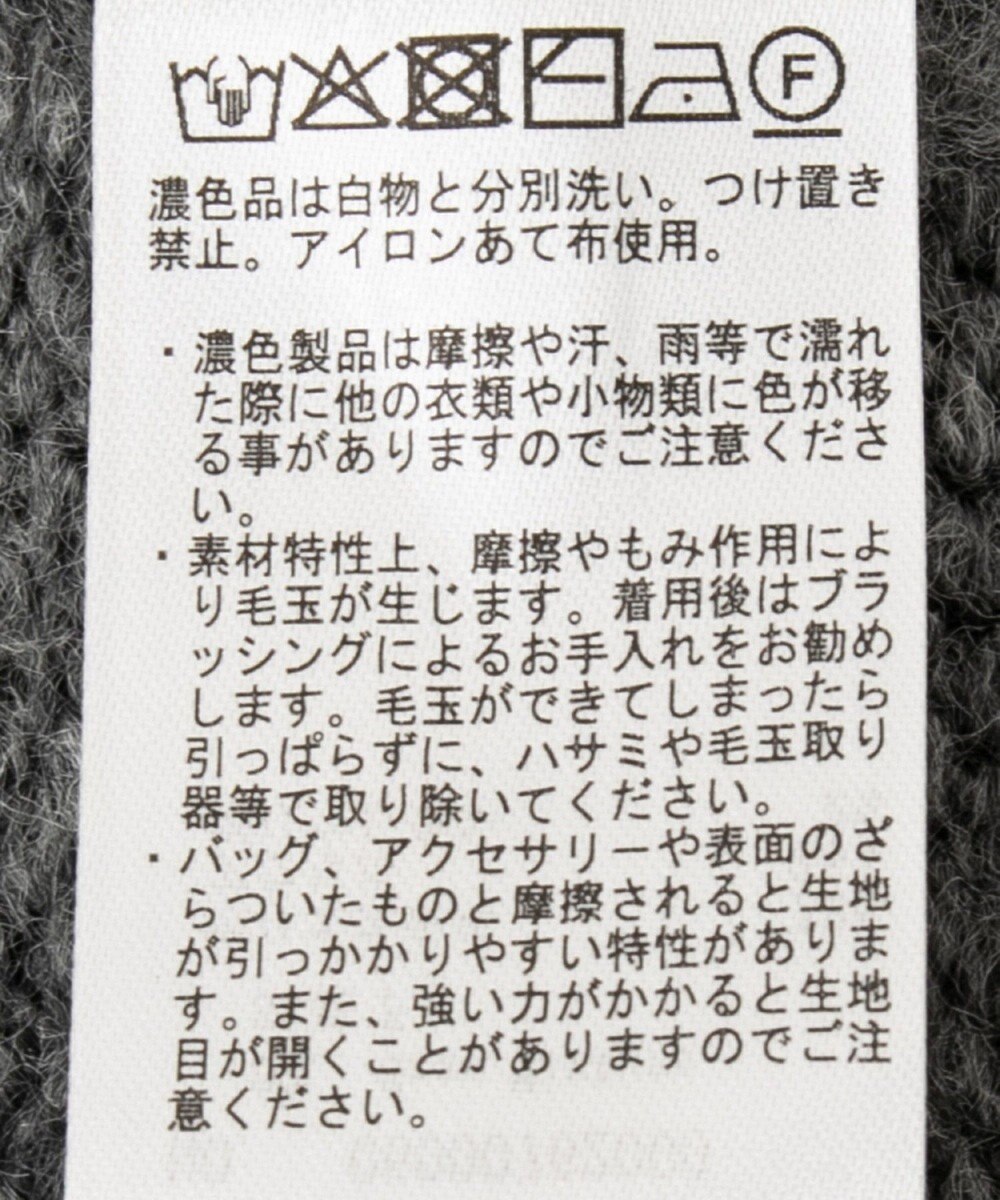 F
濃色品は白物と分別洗い。つけ置き
禁止。アイロンあて布使用。
・濃色製品は摩擦や汗、雨等で濡れ
た際に他の衣類や小物類に色が移
る事がありますのでご注意くださ
い。
・素材特性上、摩擦やもみ作用によ
り毛玉が生じます。着用後はブラ
ッシングによるお手入れをお勧め
します。毛玉ができてしまったら
引っぱらずに、ハサミや毛玉取り
器等で取り除いてください。
・バッグ、アクセサリーや表面のざ
らついたものと摩擦されると生地
が引っかかりやすい特性がありま
す。また、強い力がかかると生地
目が開くことがありますのでご注
意ください。